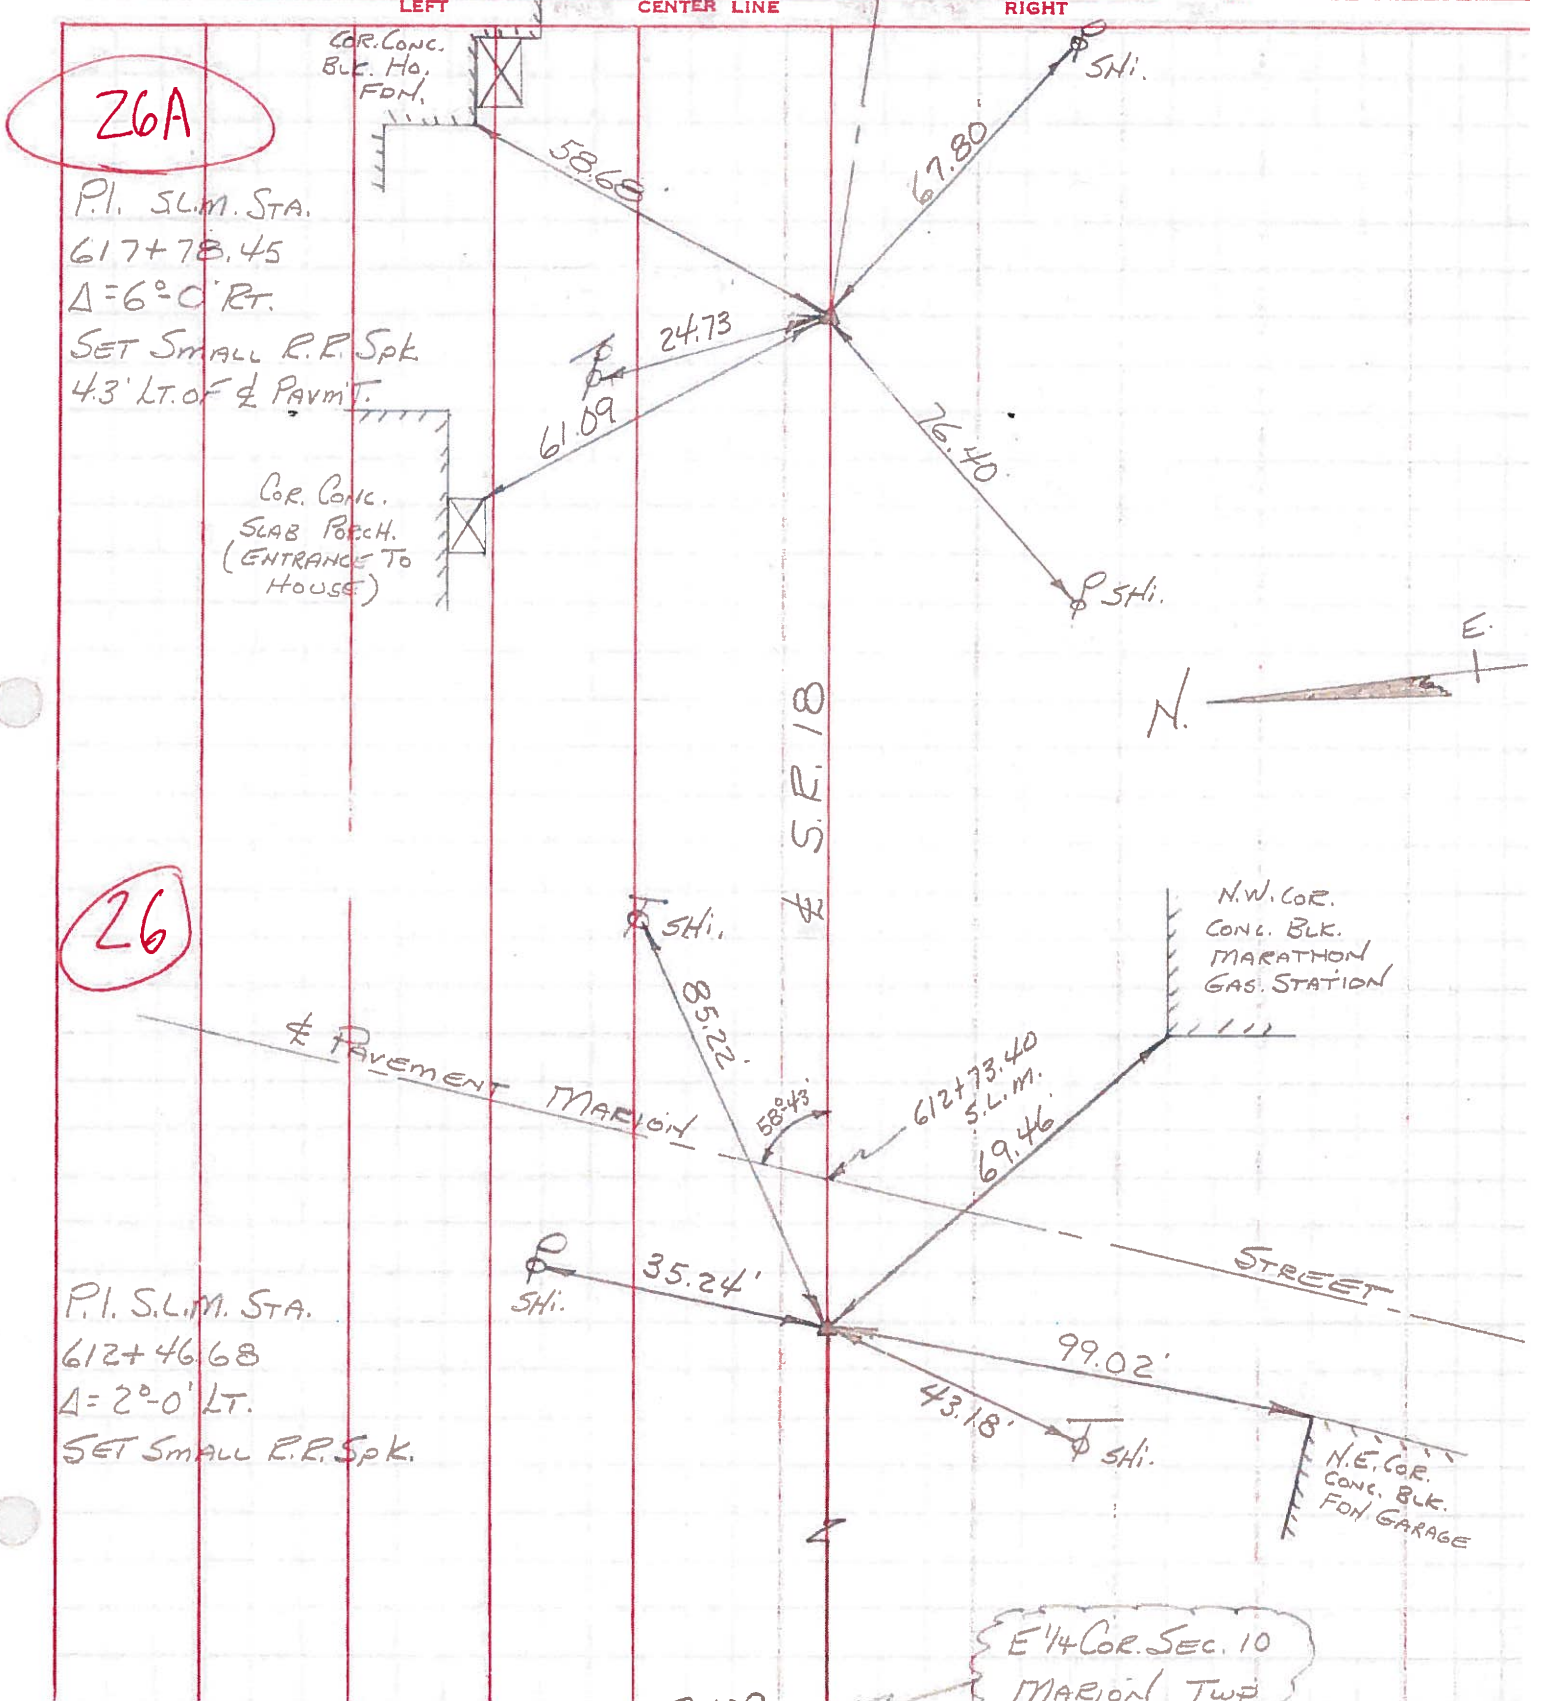 LEFT
CENTER LINE
RIGHT
COR. CONC.
BLK. HO.
FDN.
26A
P.I. S.L.M. STA.
617+78.45
Δ=6°-0' RT.
SET SMALL R.R. SPK
4.3' LT. OF ℄ PAVM'T.
58.68'
67.80'
SHi.
24.73
61.09
76.40'
SHi.
COR. CONC.
SLAB PORCH.
(ENTRANCE TO
HOUSE)
E.
N.
℄ S.R. 18
26
SHi.
85.22'
N.W. COR.
CONC. BLK.
MARATHON
GAS. STATION
℄ PAVEMENT MARION STREET
58°-43'
612+73.40
S.L.M.
69.46'
35.24'
SHi.
P.I. S.L.M. STA.
612+46.68
Δ=2°-0' LT.
SET SMALL R.R. SPK.
99.02'
43.18'
SHi.
N.E. COR.
CONC. BLK.
FDN GARAGE
E 1/4 COR. SEC. 10
MARION TWP